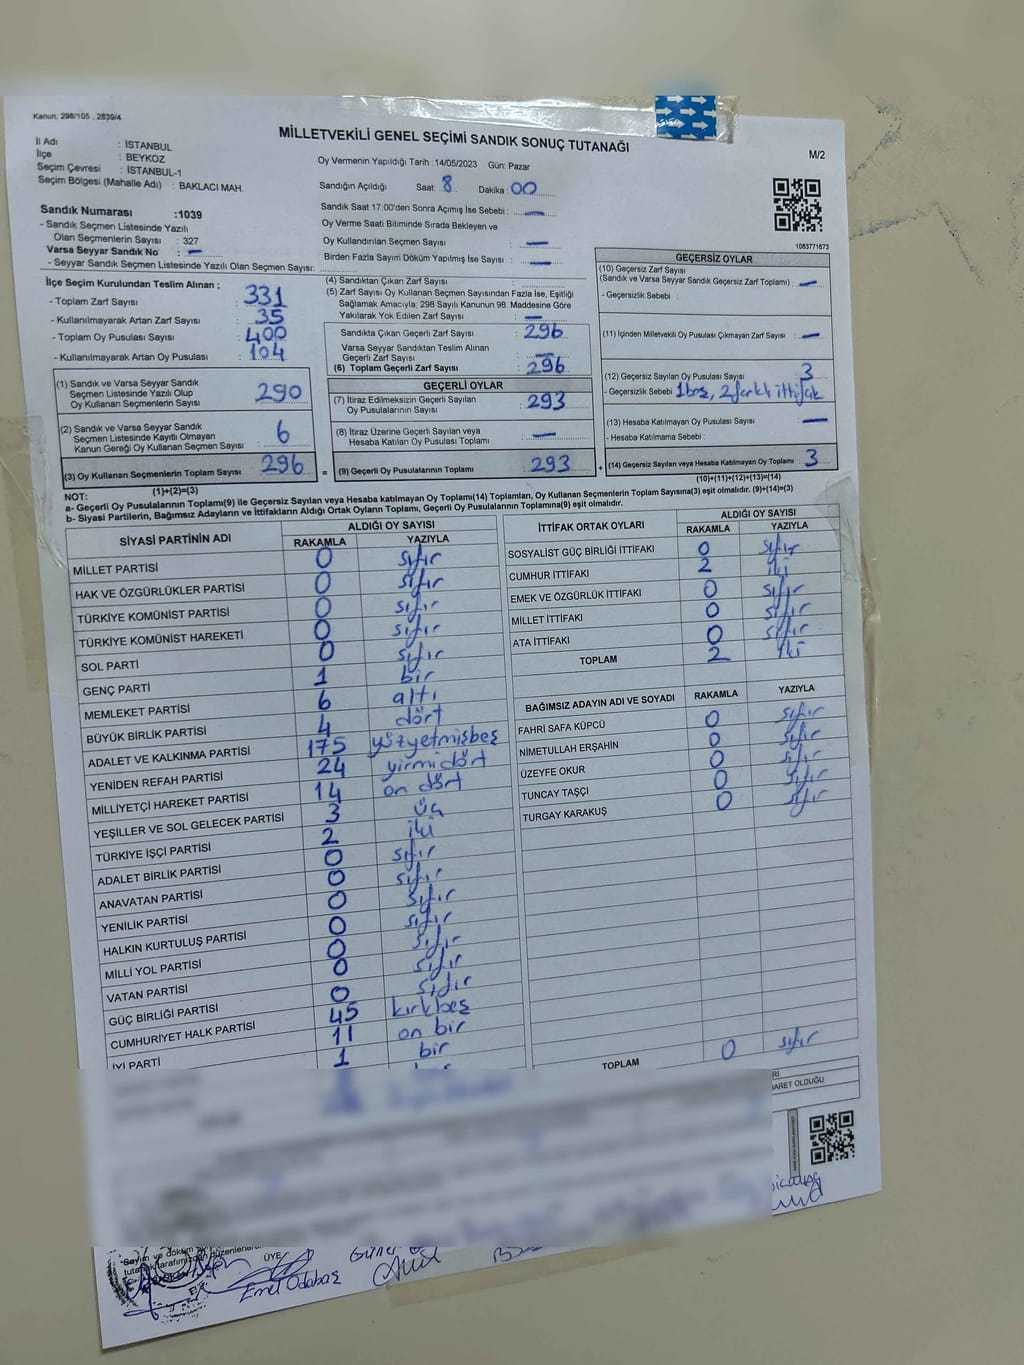 Kanun: 298/105 , 2839/4
MİLLETVEKİLİ GENEL SEÇİMİ SANDIK SONUÇ TUTANAĞI
M/2
İl Adı : İSTANBUL
İlçe : BEYKOZ
Seçim Çevresi : İSTANBUL-1
Seçim Bölgesi (Mahalle Adı) : BAKLACI MAH.
Oy Vermenin Yapıldığı Tarih : 14/05/2023 Gün: Pazar
Sandığın Açıldığı Saat: 8 Dakika : 00
Sandık Saat 17:00'den Sonra Açımış İse Sebebi : —
Oy Verme Saati Bitiminde Sırada Bekleyen ve
Oy Kullandırılan Seçmen Sayısı : —
Birden Fazla Sayım Döküm Yapılmış İse Sayısı : —
1083771673
Sandık Numarası :1039
- Sandık Seçmen Listesinde Yazılı
Olan Seçmenlerin Sayısı : 327
Varsa Seyyar Sandık No : —
- Seyyar Sandık Seçmen Listesinde Yazılı Olan Seçmen Sayısı:
İlçe Seçim Kurulundan Teslim Alınan ;
- Toplam Zarf Sayısı : 331
- Kullanılmayarak Artan Zarf Sayısı : 35
- Toplam Oy Pusulası Sayısı : 400
- Kullanılmayarak Artan Oy Pusulası : 104
(1) Sandık ve Varsa Seyyar Sandık
Seçmen Listesinde Yazılı Olup
Oy Kullanan Seçmenlerin Sayısı : 290
(2) Sandık ve Varsa Seyyar Sandık
Seçmen Listesinde Kayıtlı Olmayan
Kanun Gereği Oy Kullanan Seçmen Sayısı : 6
(3) Oy Kullanan Seçmenlerin Toplam Sayısı : 296
(1)+(2)=(3)
(4) Sandıktan Çıkan Zarf Sayısı :
(5) Zarf Sayısı Oy Kullanan Seçmen Sayısından Fazla İse, Eşitliği
Sağlamak Amacıyla, 298 Sayılı Kanunun 98. Maddesine Göre
Yakılarak Yok Edilen Zarf Sayısı : —
Sandıkta Çıkan Geçerli Zarf Sayısı : 296
Varsa Seyyar Sandıktan Teslim Alınan
Geçerli Zarf Sayısı : —
(6) Toplam Geçerli Zarf Sayısı : 296
GEÇERLİ OYLAR
(7) İtiraz Edilmeksizin Geçerli Sayılan
Oy Pusulalarının Sayısı : 293
(8) İtiraz Üzerine Geçerli Sayılan veya
Hesaba Katılan Oy Pusulası Toplamı : —
= (9) Geçerli Oy Pusulalarının Toplamı : 293
GEÇERSİZ OYLAR
(10) Geçersiz Zarf Sayısı
(Sandık ve Varsa Seyyar Sandık Geçersiz Zarf Toplamı) : —
- Geçersizlik Sebebi :
(11) İçinden Milletvekili Oy Pusulası Çıkmayan Zarf Sayısı : —
(12) Geçersiz Sayılan Oy Pusulası Sayısı : 3
- Geçersizlik Sebebi : 1 boş, 2 farklı ittifak
(13) Hesaba Katılmayan Oy Pusulası Sayısı : —
- Hesaba Katılmama Sebebi :
+ (14) Geçersiz Sayılan veya Hesaba Katılmayan Oy Toplamı : 3
(10)+(11)+(12)+(13)=(14)
NOT:
a- Geçerli Oy Pusulalarının Toplamı(9) ile Geçersiz Sayılan veya Hesaba katılmayan Oy Toplamı(14) Toplamları, Oy Kullanan Seçmenlerin Toplam Sayısına(3) eşit olmalıdır. (9)+(14)=(3)
b- Siyasi Partilerin, Bağımsız Adayların ve İttifakların Aldığı Ortak Oyların Toplamı, Geçerli Oy Pusulalarının Toplamına(9) eşit olmalıdır.
SİYASİ PARTİNİN ADI ALDIĞI OY SAYISI
RAKAMLA YAZIYLA
MİLLET PARTİSİ 0 sıfır
HAK VE ÖZGÜRLÜKLER PARTİSİ 0 sıfır
TÜRKİYE KOMÜNİST PARTİSİ 0 sıfır
TÜRKİYE KOMÜNİST HAREKETİ 0 sıfır
SOL PARTİ 0 sıfır
GENÇ PARTİ 1 bir
MEMLEKET PARTİSİ 6 altı
BÜYÜK BİRLİK PARTİSİ 4 dört
ADALET VE KALKINMA PARTİSİ 175 yüzyetmişbeş
YENİDEN REFAH PARTİSİ 24 yirmidört
MİLLİYETÇİ HAREKET PARTİSİ 14 on dört
YEŞİLLER VE SOL GELECEK PARTİSİ 3 üç
TÜRKİYE İŞÇİ PARTİSİ 2 iki
ADALET BİRLİK PARTİSİ 0 sıfır
ANAVATAN PARTİSİ 0 sıfır
YENİLİK PARTİSİ 0 sıfır
HALKIN KURTULUŞ PARTİSİ 0 sıfır
MİLLİ YOL PARTİSİ 0 sıfır
VATAN PARTİSİ 0 sıfır
GÜÇ BİRLİĞİ PARTİSİ 0 sıfır
CUMHURİYET HALK PARTİSİ 45 kırkbeş
İYİ PARTİ 11 on bir
1 bir
İTTİFAK ORTAK OYLARI ALDIĞI OY SAYISI
RAKAMLA YAZIYLA
SOSYALİST GÜÇ BİRLİĞİ İTTİFAKI 0 sıfır
CUMHUR İTTİFAKI 2 iki
EMEK VE ÖZGÜRLÜK İTTİFAKI 0 sıfır
MİLLET İTTİFAKI 0 sıfır
ATA İTTİFAKI 0 sıfır
TOPLAM 2 iki
BAĞIMSIZ ADAYIN ADI VE SOYADI RAKAMLA YAZIYLA
FAHRİ SAFA KÜPCÜ 0 sıfır
NİMETULLAH ERŞAHİN 0 sıfır
ÜZEYFE OKUR 0 sıfır
TUNCAY TAŞÇI 0 sıfır
TURGAY KARAKUŞ 0 sıfır
TOPLAM 0 sıfır
ARET OLDUĞU
Sayım ve döküm
ÜYE
Emel Odabaş